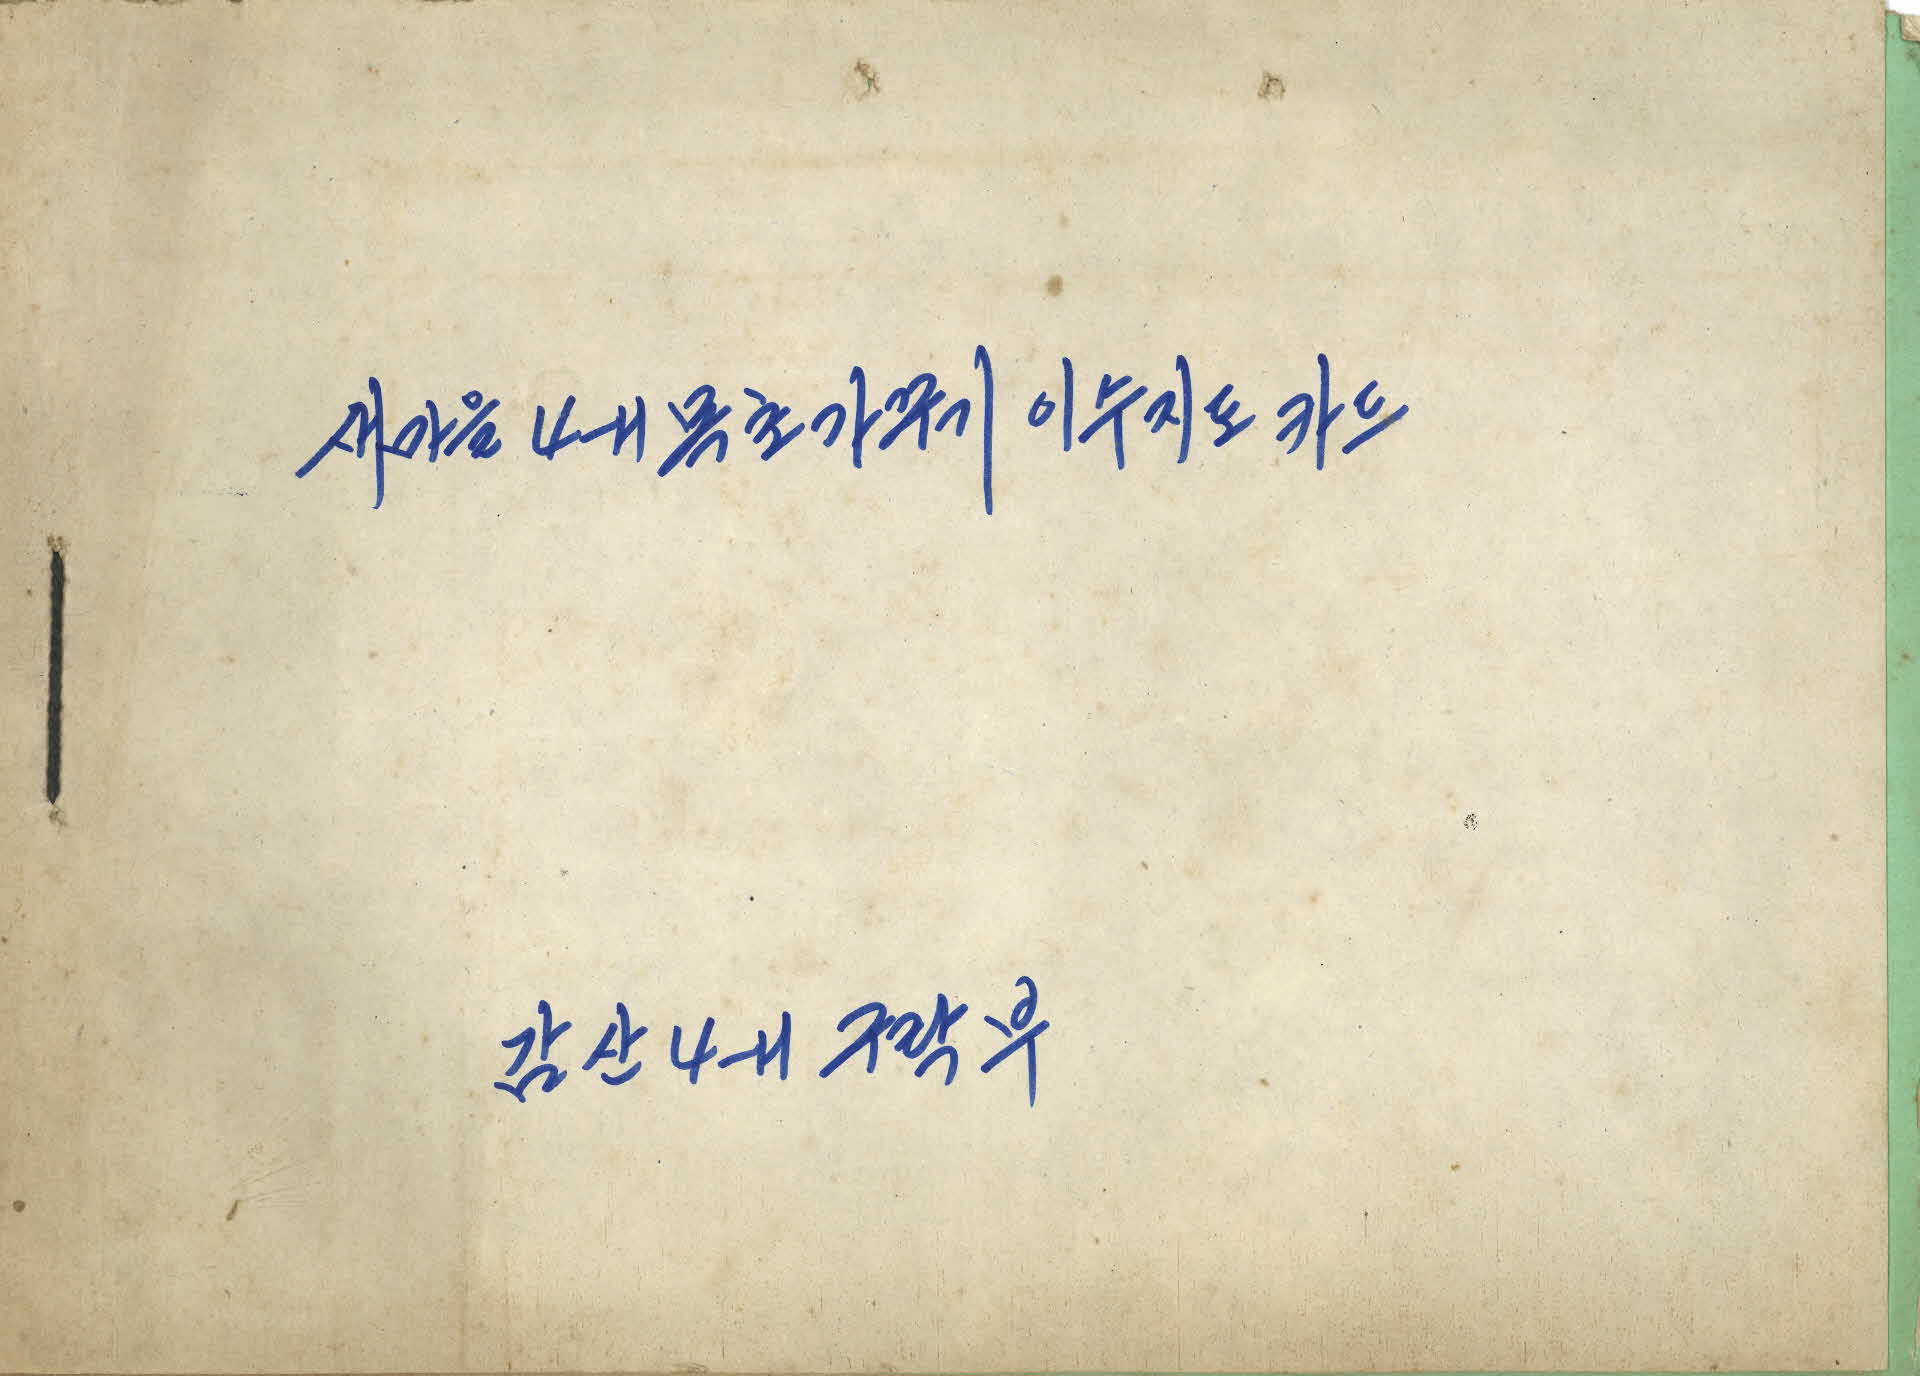 새마을 4-H 목초가꾸기 이수지도 카드
감산 4-H 구락부